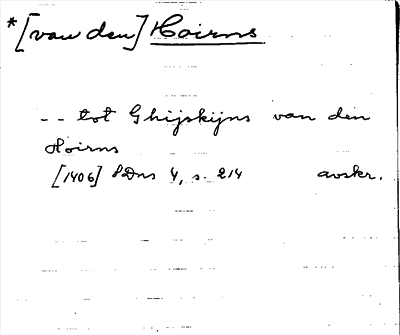 *[van den] Hoirns
-- tot Ghijskijns van den
Hoirns
[1406] SDns 4, s. 214 avskr.